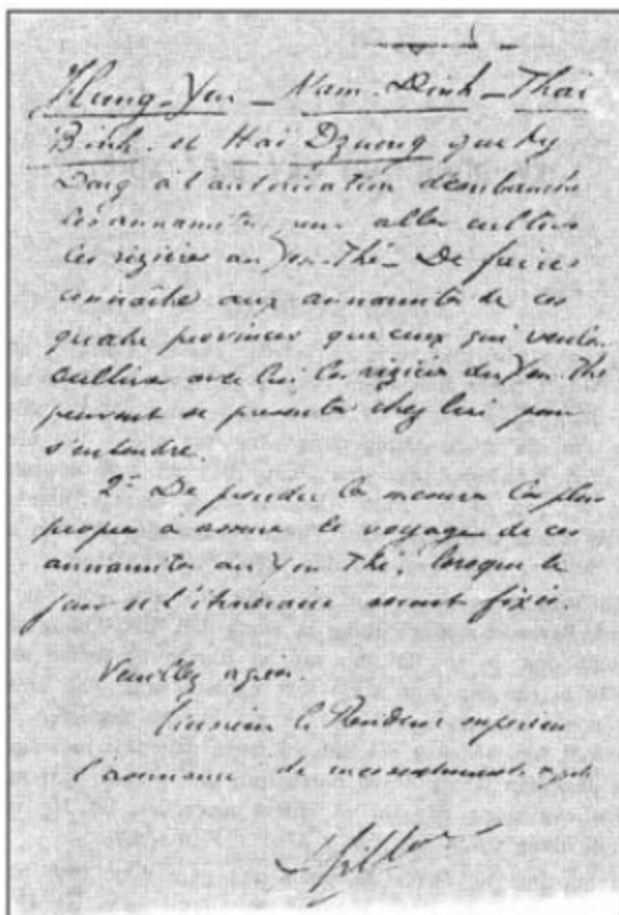 Hung-Yen - Nam-Dinh - Thaï
Binh et Haï Dzuong que Ky
Dong à l'autorisation d'embaucher
des annamites pour aller cultiver
les rizières au Yen-Thé - De faire
connaître aux annamites de ces
quatre provinces que ceux qui veulent
cultiver avec lui les rizières du Yen-Thé
peuvent se présenter chez lui pour
s'entendre.
2° De prendre les mesures les plus
propres à assurer le voyage de ces
annamites au Yen Thé, lorsque le
jour et l'itinéraire seront fixés.
Veuillez agréer
Monsieur le Résident supérieur
l'assurance de mes sentiments